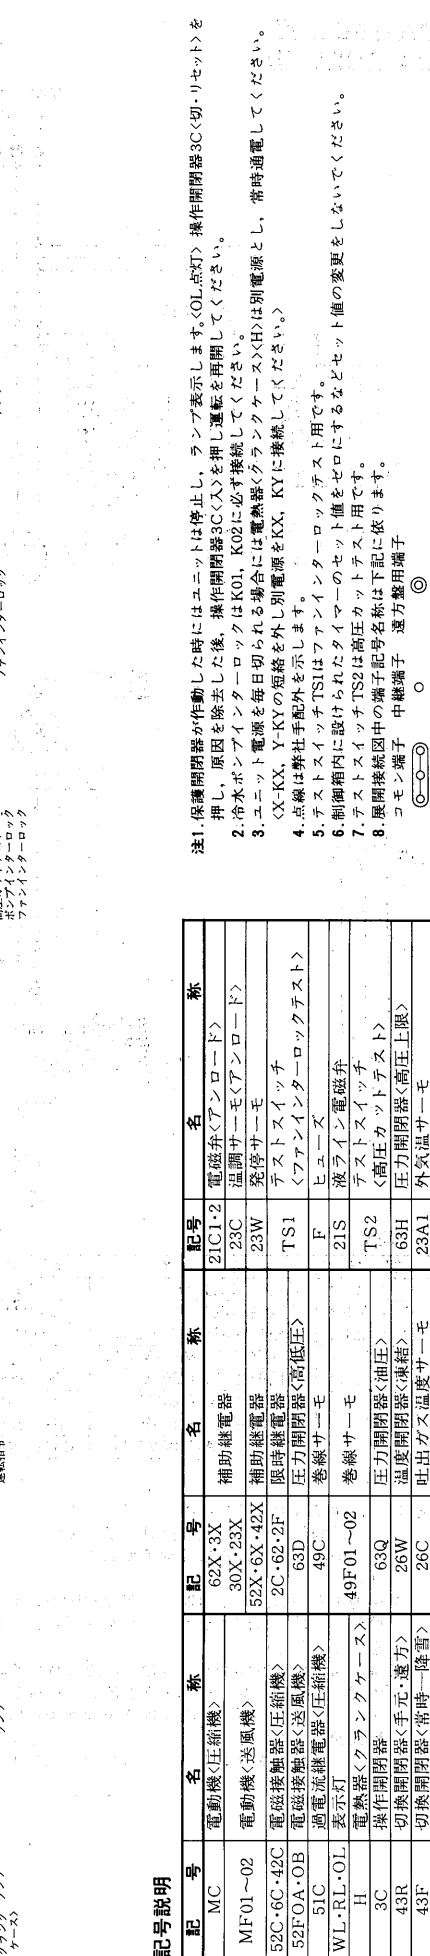 ファンインターロック
ポンプインターロック
ファンインターロック
ケース〉
記号説明
記 号 名 称 記 号 名 称 記号 名 称
MC 電動機〈圧縮機〉 62X・3X 補助継電器 21C1・2 電磁弁〈アンロード〉
MF01〜02 電動機〈送風機〉 30X・23X 23C 温調サーモ〈アンロード〉
52X・6X・42X 補助継電器 23W 発停サーモ
52C・6C・42C 電磁接触器〈圧縮機〉 2C・62・2F 限時継電器 TS1 テストスイッチ
52FOA・OB 電磁接触器〈送風機〉 63D 圧力開閉器〈高低圧〉 〈ファンインターロックテスト〉
51C 過電流継電器〈圧縮機〉 49C 巻線サーモ F ヒューズ
WL・RL・OL 表示灯 49F01〜02 巻線サーモ 21S 液ライン電磁弁
H 電熱器〈クランクケース〉 TS2 テストスイッチ
3C 操作開閉器 63Q 圧力開閉器〈油圧〉 〈高圧カットテスト〉
43R 切換開閉器〈手元・遠方〉 26W 温度開閉器〈凍結〉 63H 圧力開閉器〈高圧上限〉
43F 切換開閉器〈常時―降雪〉 26C 吐出ガス温度サーモ 23A1 外気温サーモ
注1.保護開閉器が作動した時にはユニットは停止し，ランプ表示します。〈OL点灯〉 操作開閉器3C〈切・リセット〉を
押し，原因を除去した後，操作開閉器3C〈入〉を押し運転を再開してください。
2.冷水ポンプインターロックはK01，K02に必ず接続してください。
3.ユニット電源を毎日切られる場合には電熱器〈クランクケース〉〈H〉は別電源とし，常時通電してください。
〈X-KX，Y-KYの短絡を外し別電源をKX，KYに接続してください。〉
4.点線は弊社手配外を示します。
5.テストスイッチTS1はファンインターロックテスト用です。
6.制御箱内に設けられたタイマーのセット値をゼロにするなどセット値の変更をしないでください。
7.テストスイッチTS2は高圧カットテスト用です。
8.展開接続図中の端子記号名称は下記に依ります。
コモン端子 中継端子 遠方盤用端子